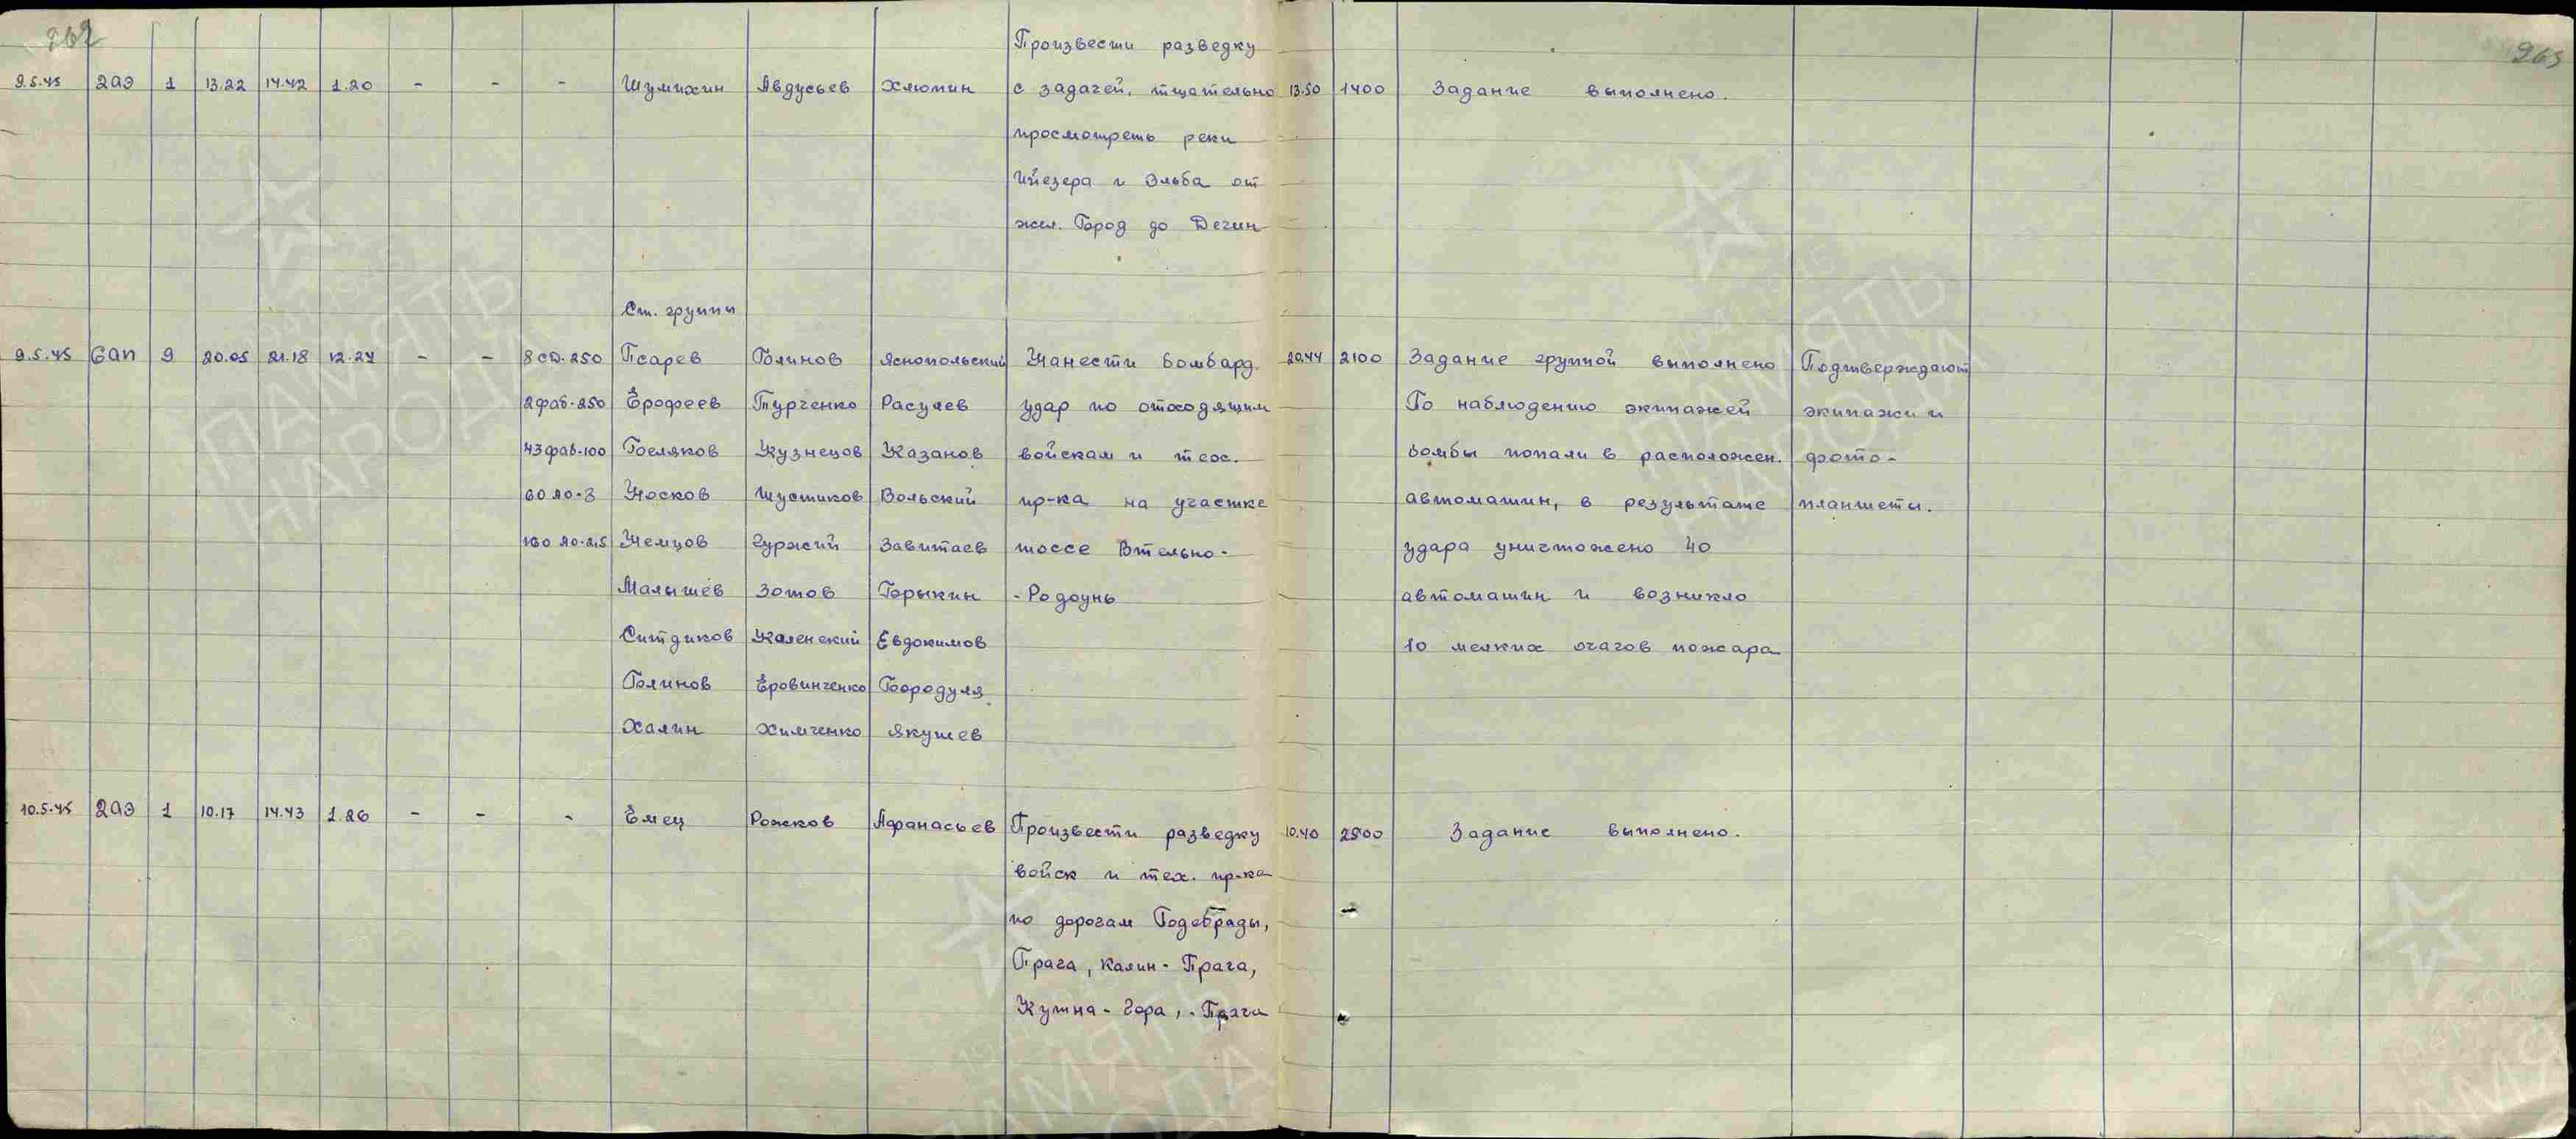 262
263
Произвести разведку
9.5.45 2аэ 1 13.22 14.42 1.20 - - - Шумихин Авдусьев Хлюпин с задачей, тщательно 13.50 1400 Задание выполнено.
просмотреть реки
Ийезера и Эльба от
жел. Город до Дечин
Ст. группы
9.5.45 6ап 9 20.05 21.18 12.27 - - 8 сд-250 Псарев Блинов Яснопольский Нанести бомбард. 20.44 2100 Задание группой выполнено Подтверждают
2фаб-250 Ерофеев Турченко Расулев удар по отходящим По наблюдению экипажей экипажи и
43фаб-100 Беляков Кузнецов Казанов войскам и тех. бомбы попали в расположен. фото-
60 АО-8 Носков Шустиков Вольский пр-ка на участке автомашин, в результате планшеты.
160 АО-2,5 Немцов Суржий Завитаев шоссе Втельно- удара уничтожено 40
Малышев Зотов Горыкин -Родоунь автомашин и возникло
Ситдиков Каленский Евдокимов 10 мелких очагов пожара
Блинов Еровинченко Бородуля
Халин Химченко Якушев
10.5.45 2аэ 1 10.17 14.43 1.26 - - - Емец Рожков Афанасьев Произвести разведку 10.40 2500 Задание выполнено.
войск и тех. пр-ка
по дорогам Подебрады,
Прага, Калин-Прага,
Кутна-Гора, - Прага
ПАМЯТЬ
НАРОДА